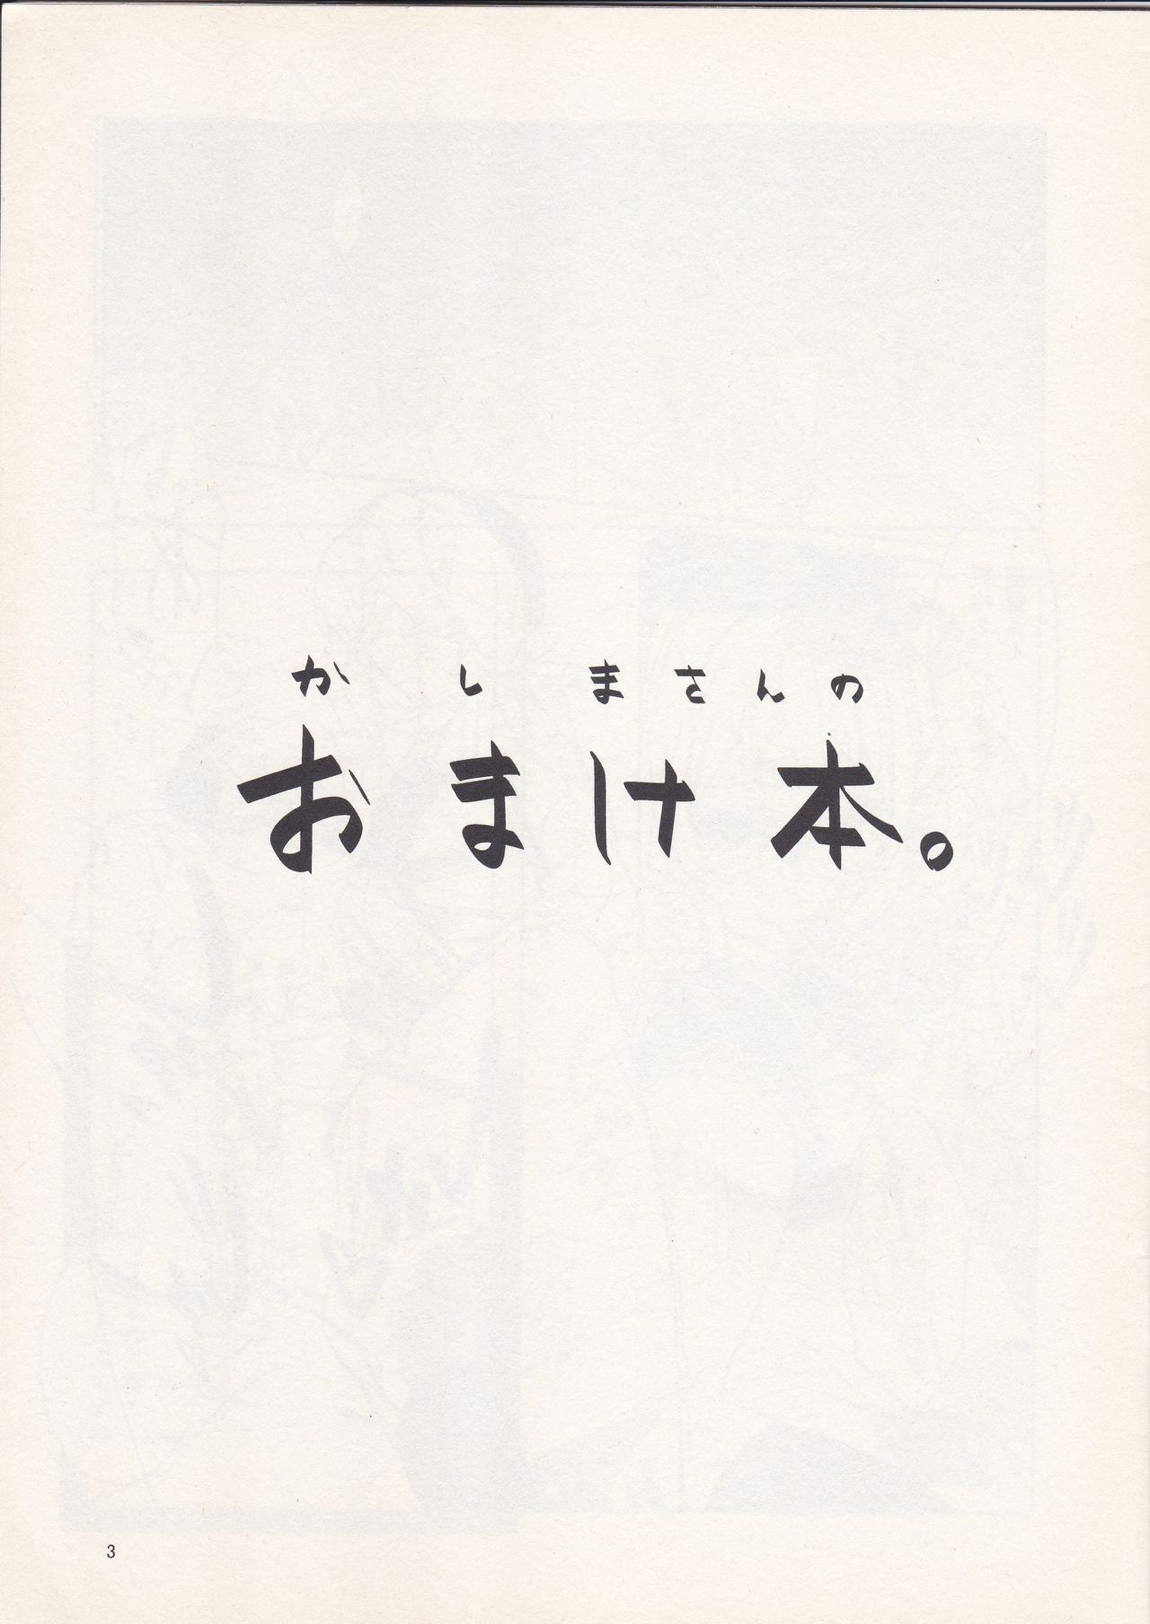 かしまさんの
おまけ本。
3